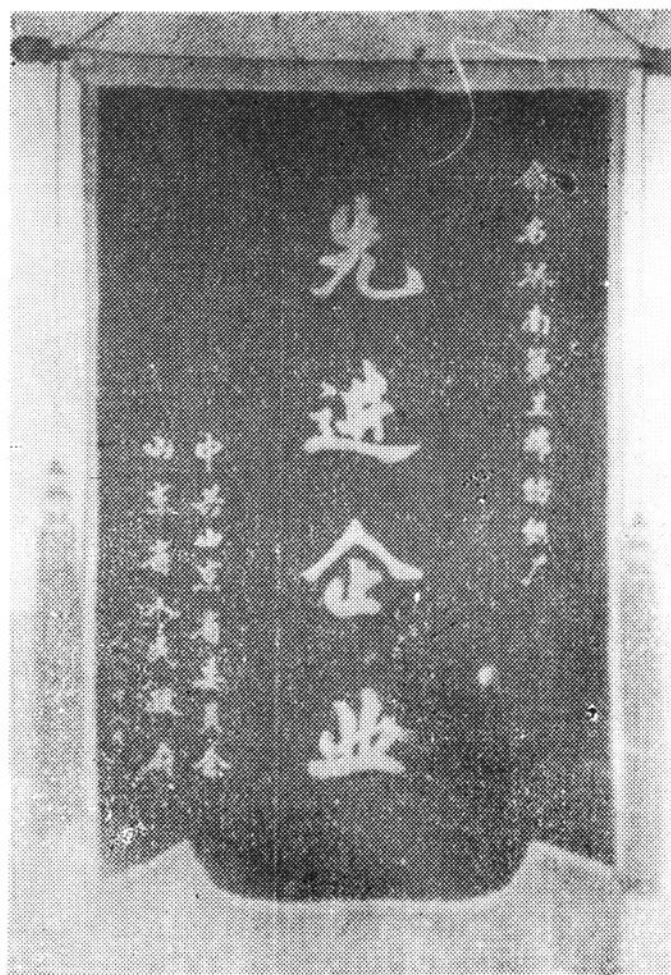 命名济南
棉纺织厂
先进企业
中共山东省委员会
山东省人民政府